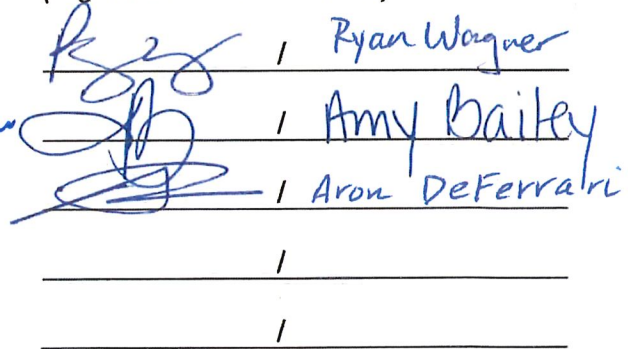 / Ryan Wagner
/ Amy Bailey
/ Aron DeFerrari
/
/